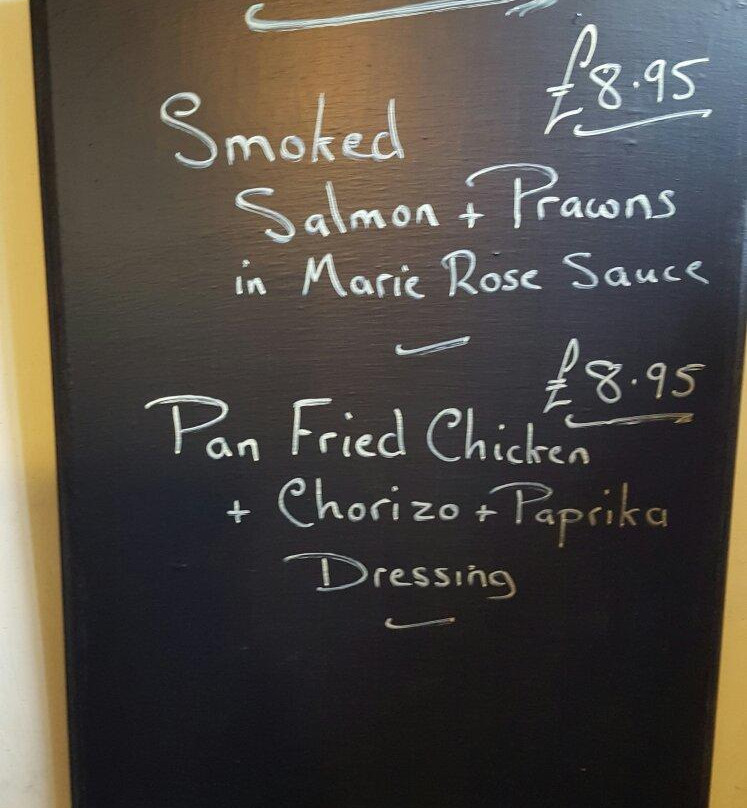 £8.95
Smoked
Salmon + Prawns
in Marie Rose Sauce
£8.95
Pan Fried Chicken
+ Chorizo + Paprika
Dressing